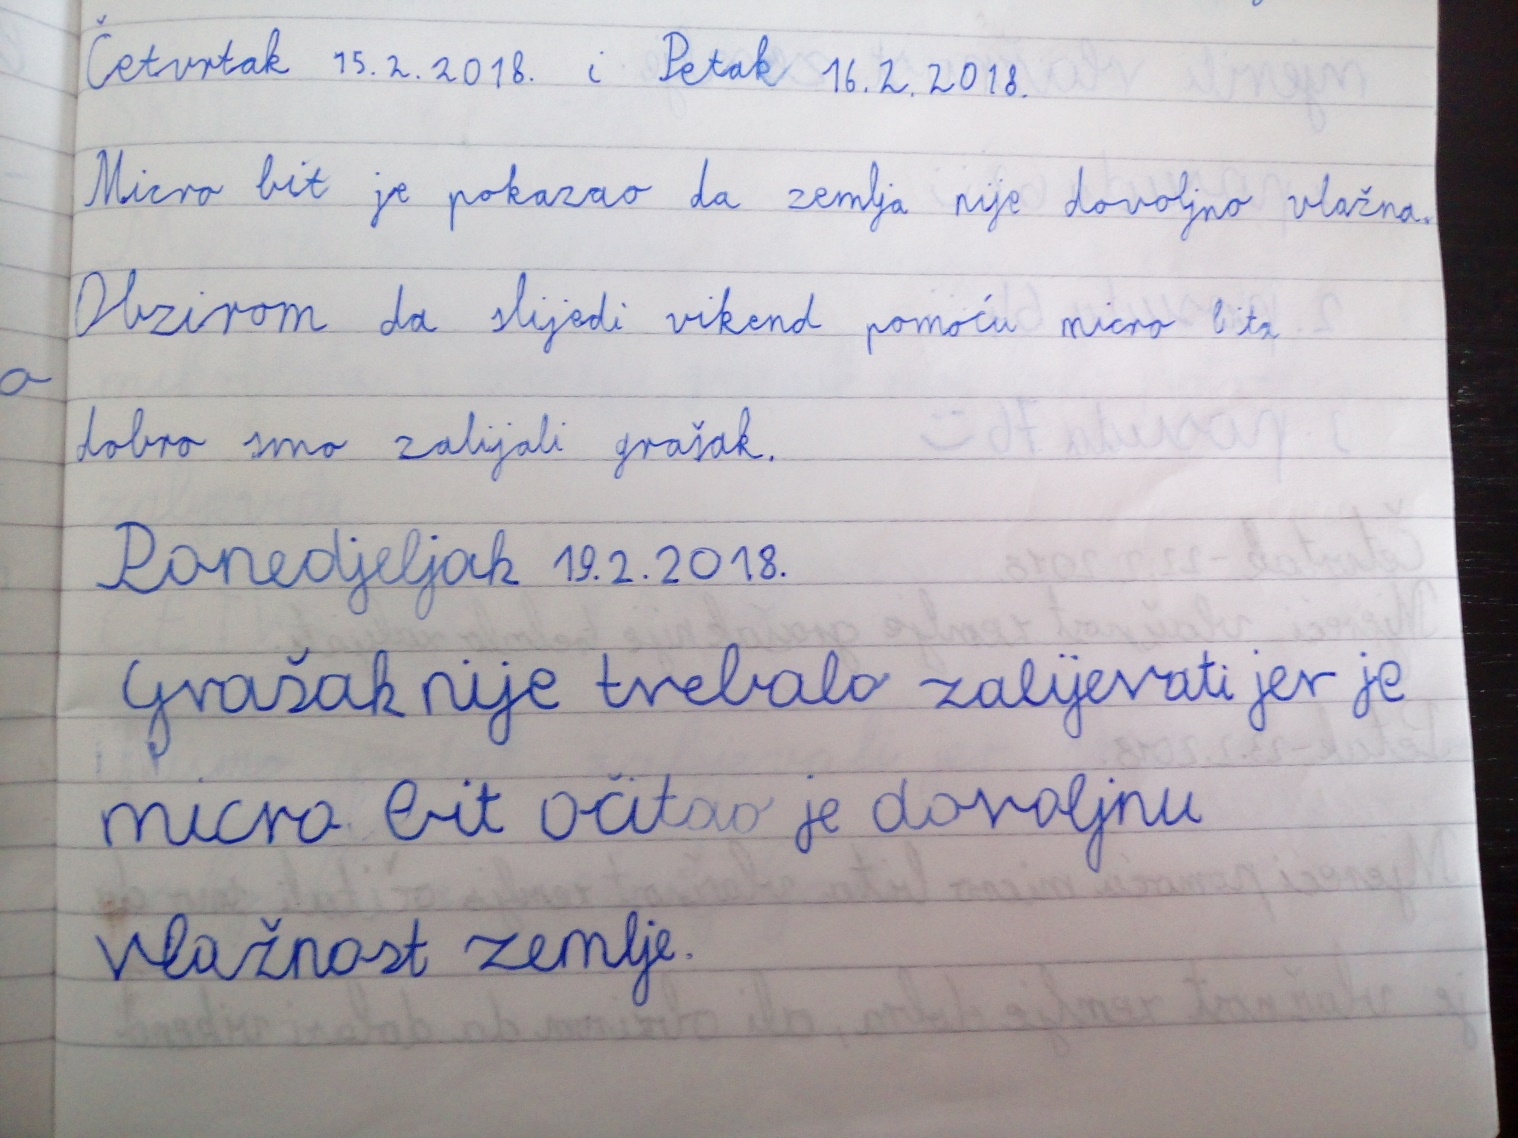 Četvrtak 15.2.2018. i Petak 16.2.2018.
Micro bit je pokazao da zemlja nije dovoljno vlažna.
Obzirom da slijedi vikend pomoću micro bita
dobro smo zalijali grašak.
Ponedjeljak 19.2.2018.
Grašak nije trebalo zalijevati jer je
micro bit očitao je dovoljnu
vlažnost zemlje.